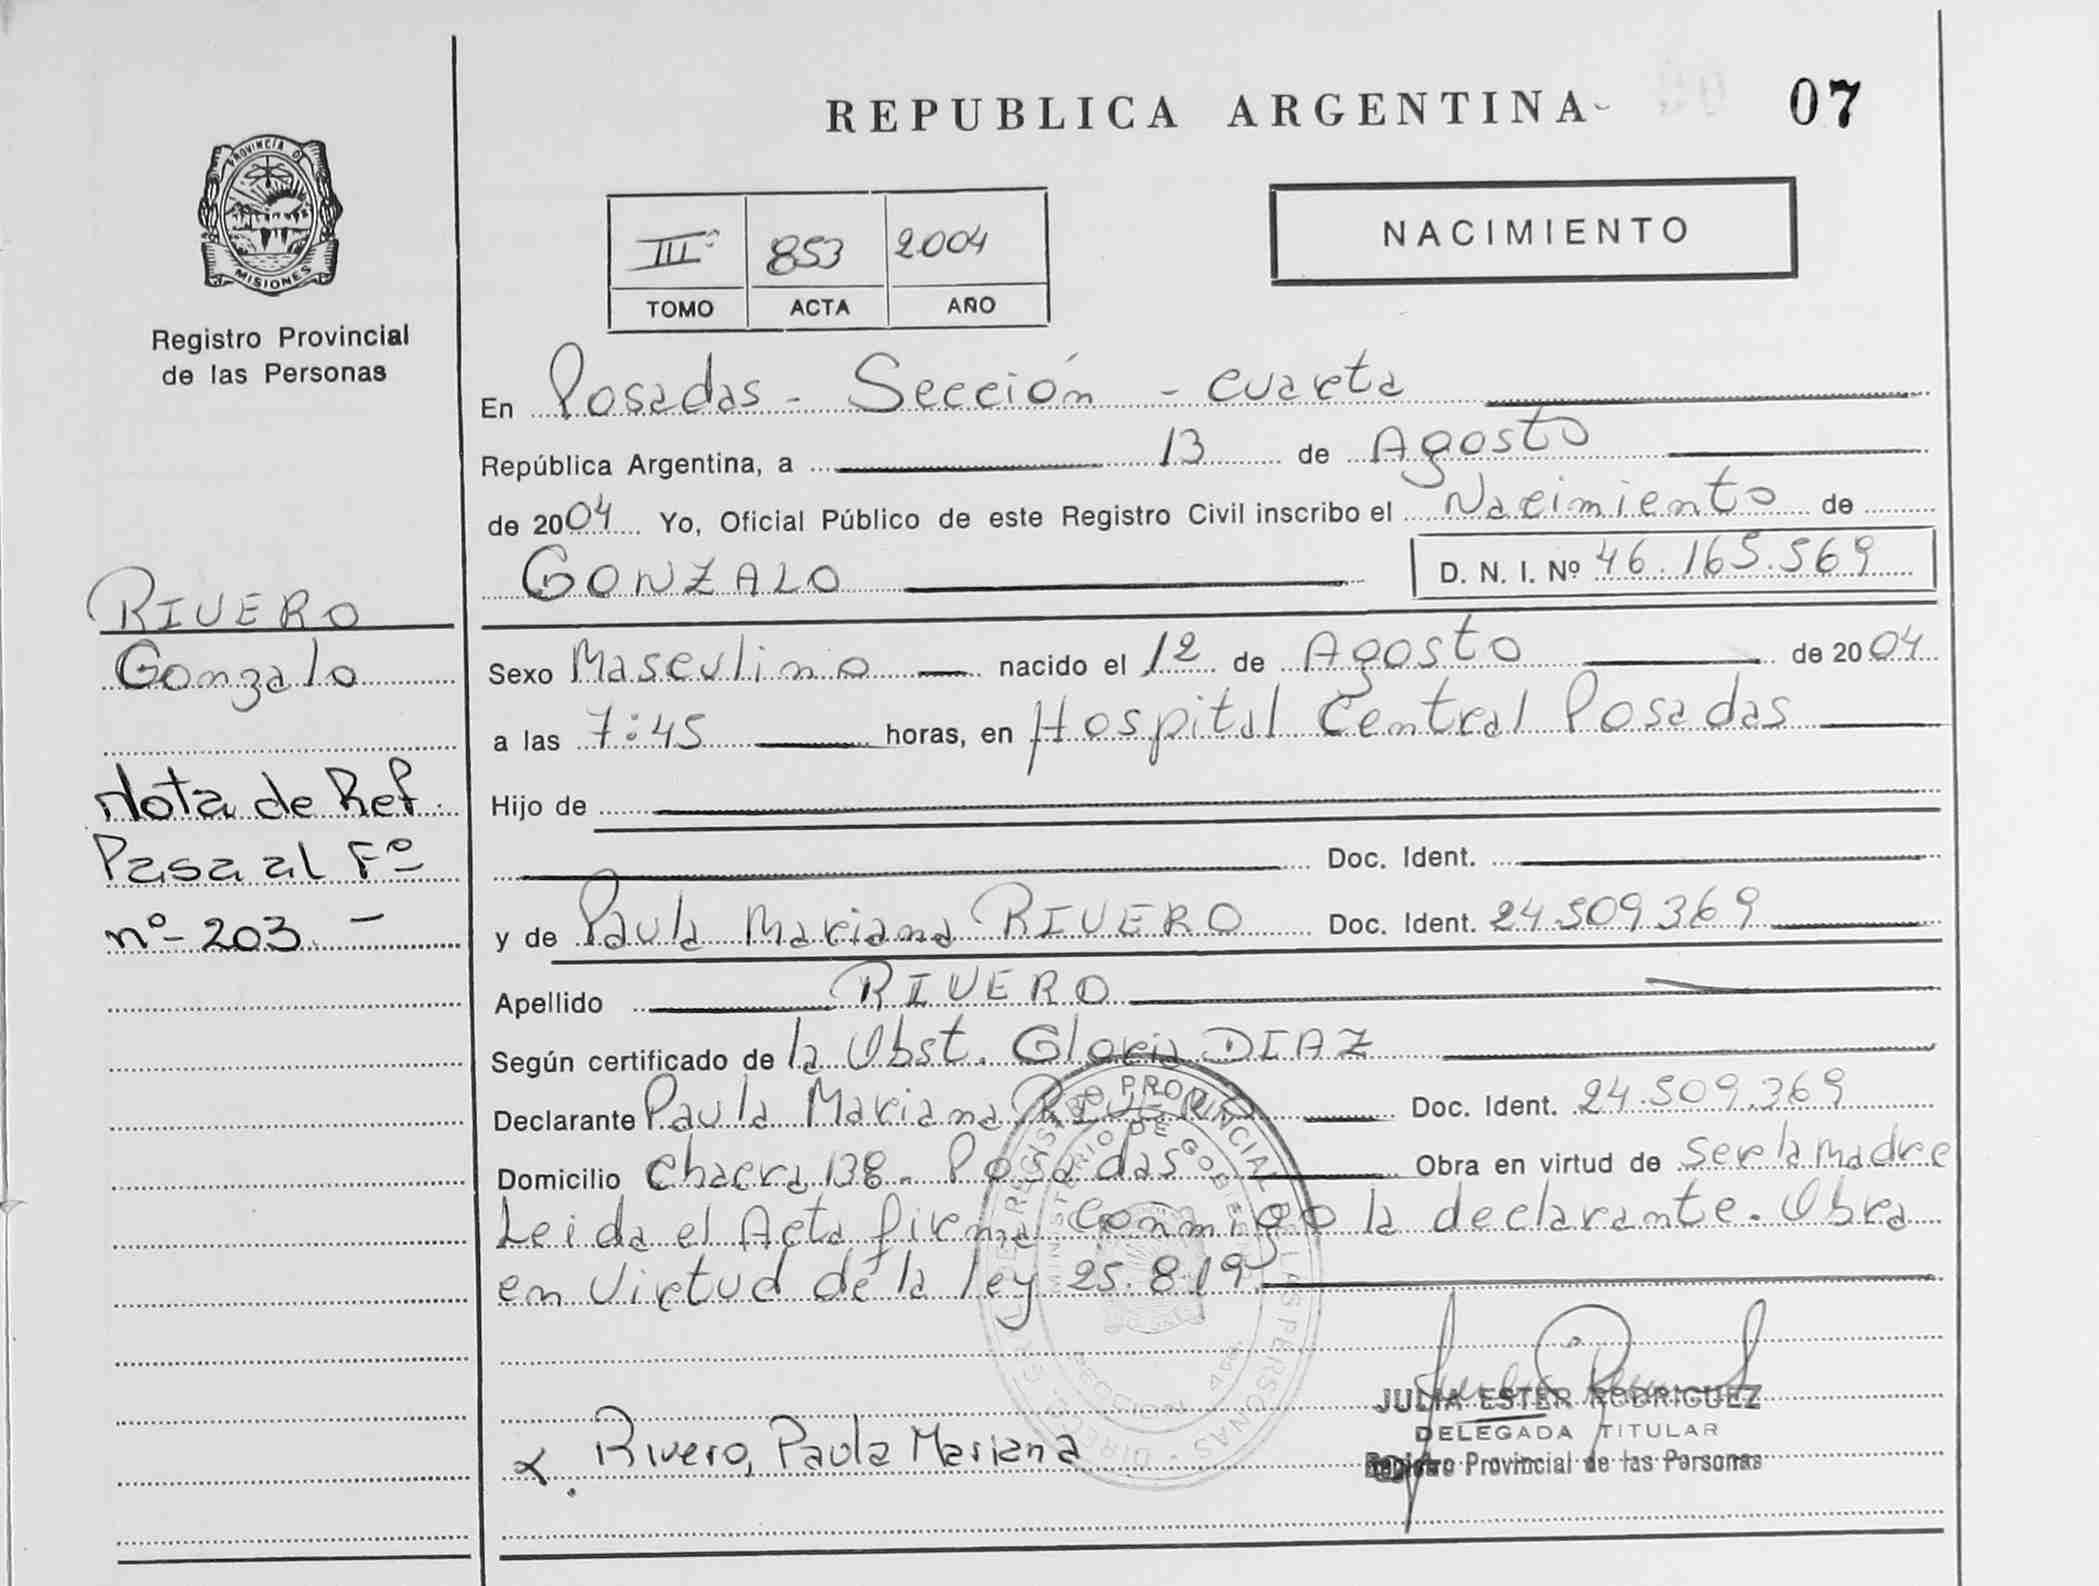 REPUBLICA ARGENTINA
07
PROVINCIA D
MISIONES
Registro Provincial
de las Personas
III° 853 2004
TOMO ACTA AÑO
NACIMIENTO
En Posadas - Sección - Cuarta
República Argentina, a 13 de Agosto
de 2004 Yo, Oficial Público de este Registro Civil inscribo el Nacimiento de
GONZALO D. N. I. Nº 46.165.569
RIVERO
Gonzalo
Nota de Ref.
Pasa al Fº
nº- 203. -
Sexo Masculino nacido el 12 de Agosto de 2004
a las 7:45 horas, en Hospital Central Posadas
Hijo de
Doc. Ident.
y de Paula Mariana RIVERO Doc. Ident. 24.509.369
Apellido RIVERO
Según certificado de la Obst. Gloria DIAZ
Declarante Paula Mariana RIVERO Doc. Ident. 24.509.369
Domicilio Chacra 138 - Posadas Obra en virtud de ser la madre
Leida el Acta firma conmigo la declarante. Obra
en virtud de la ley 25.819
REGISTRO PROVINCIAL DE LAS PERSONAS
MINISTERIO DE GOBIERNO
JULIA ESTER RODRIGUEZ
DELEGADA TITULAR
Registro Provincial de las Personas
Rivero, Paula Mariana